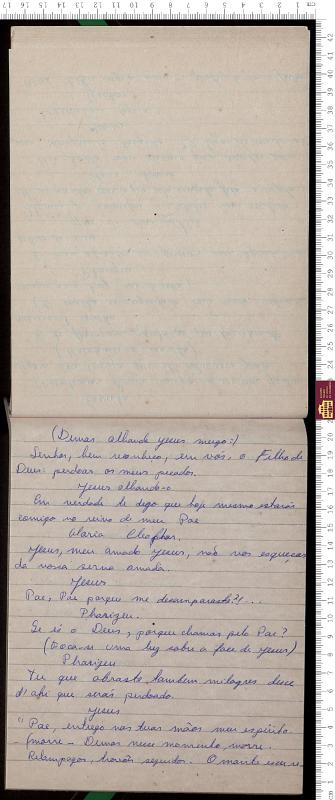 (Dimas olhando Jesus meigo:)
Senhor, bem reconheço, em vós, o Filho de
Deus: perdoae os meus pecados.
Jesus olhando-o
Em verdade te digo que hoje mesmo estarás
comigo no reino de meu Pae
Maria Cleophas.
Jesus, meu amado Jesus, não vos esqueçaes
da vossa serva amada.
Jesus
Pae, Pae porque me desamparaste?!...
Phariseu.
Se és o Deus, porque chamas pelo Pae?
(Foca-se uma luz sobre a face de Jesus)
Phariseu
Tu que obraste tambem milagres desce
d'ahi que serás perdoado.
Jesus
"Pae, entrego nas tuas mãos meu espirito
(morre - Dimas nesse momento morre.
Relampagos, trovões seguidos. O monte